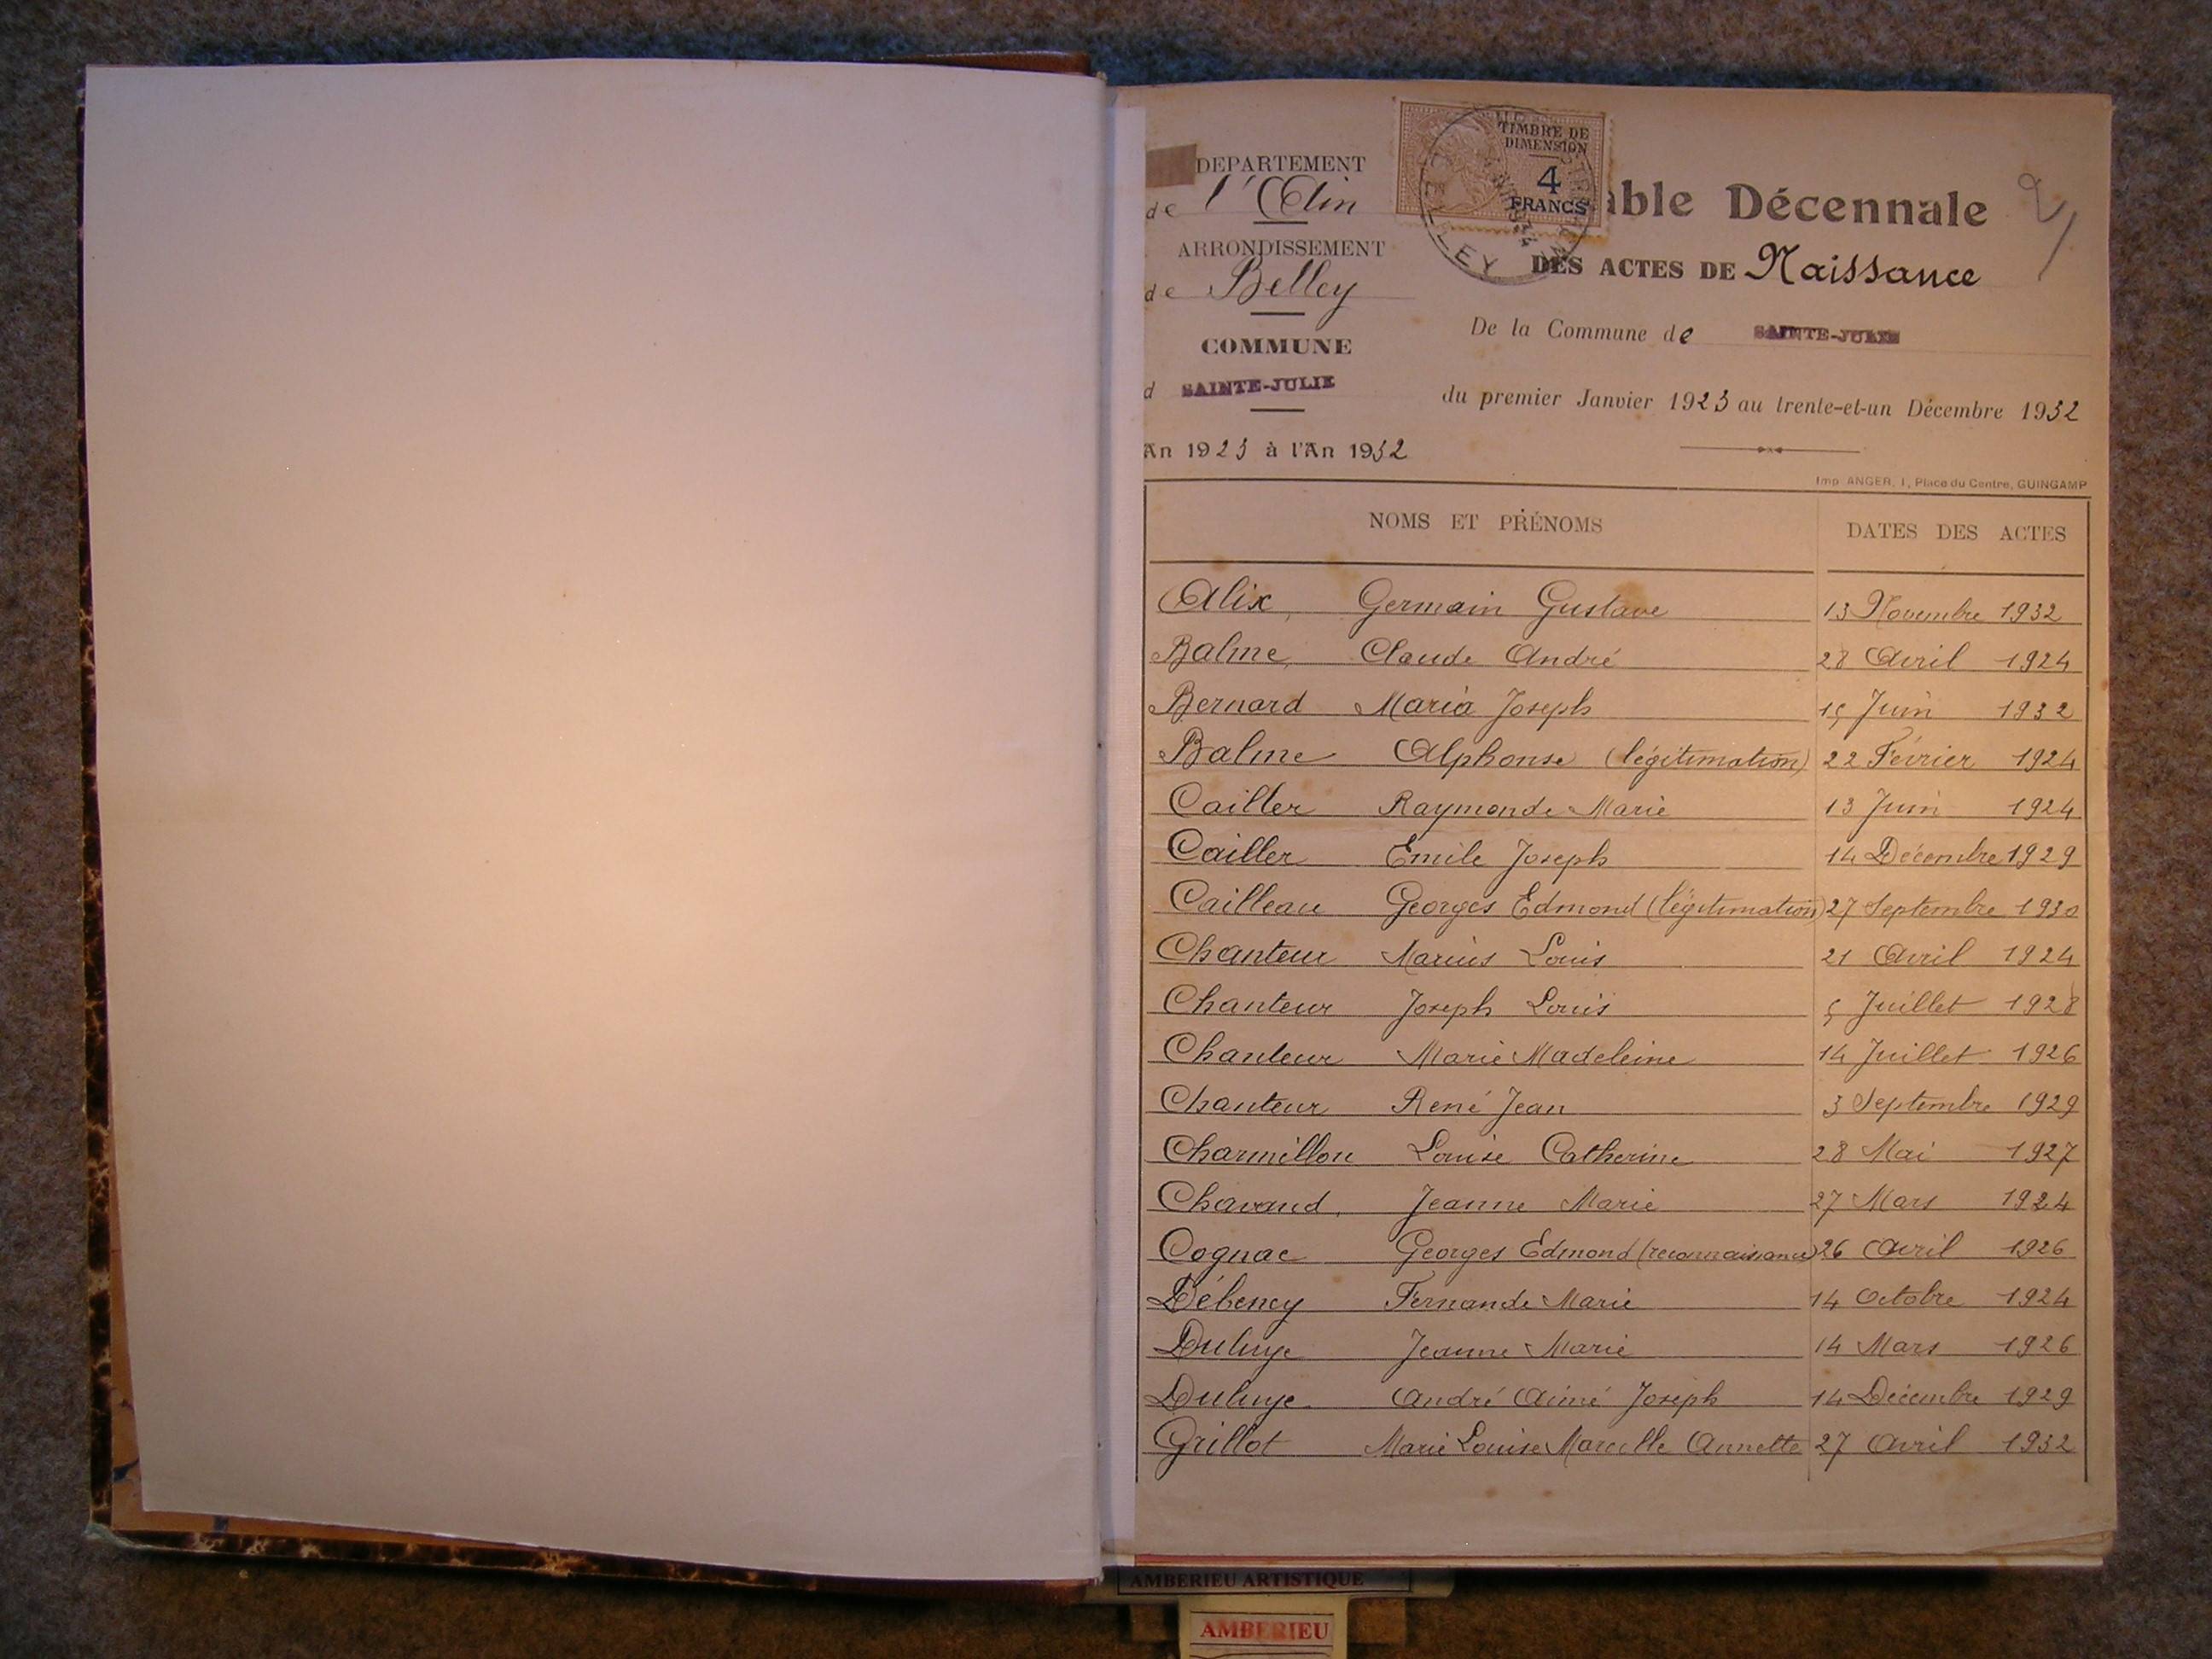 DEPARTEMENT
de l'Ain
ARRONDISSEMENT
de Belley
COMMUNE
d SAINTE-JULIE
An 1923 à l'An 1932
TIMBRE DE
DIMENSION
4
FRANCS
able Décennale
DES ACTES DE Naissance
De la Commune de SAINTE-JULIE
du premier Janvier 1923 au trente-et-un Décembre 1932
Imp. ANGER, 1, Place du Centre, GUINGAMP
NOMS ET PRÉNOMS DATES DES ACTES
Alix, Germain Gustave 13 Novembre 1932
Balme, Claude André 28 Avril 1924
Bernard Maria Joseph 15 Juin 1932
Balme Alphonse (légitimation) 22 Février 1924
Cailler Raymonde Marie 13 Juin 1924
Cailler Emile Joseph 14 Décembre 1929
Cailleau Georges Edmond (légitimation) 27 Septembre 1930
Chanteur Marius Louis 21 Avril 1924
Chanteur Joseph Louis 5 Juillet 1928
Chanteur Marie Madeleine 14 Juillet 1926
Chanteur René Jean 3 Septembre 1929
Charmillon Louise Catherine 28 Mai 1927
Chavand, Jeanne Marie 27 Mars 1924
Cognac Georges Edmond (reconnaissance) 26 Avril 1926
Débeney Fernande Marie 14 Octobre 1924
Jeanne Marie 14 Mars 1926
André Aimé Joseph 14 Décembre 1929
Grillot Marie Louise Marcelle Annette 27 Avril 1932
AMBERIEU ARTISTIQUE
AMBERIEU